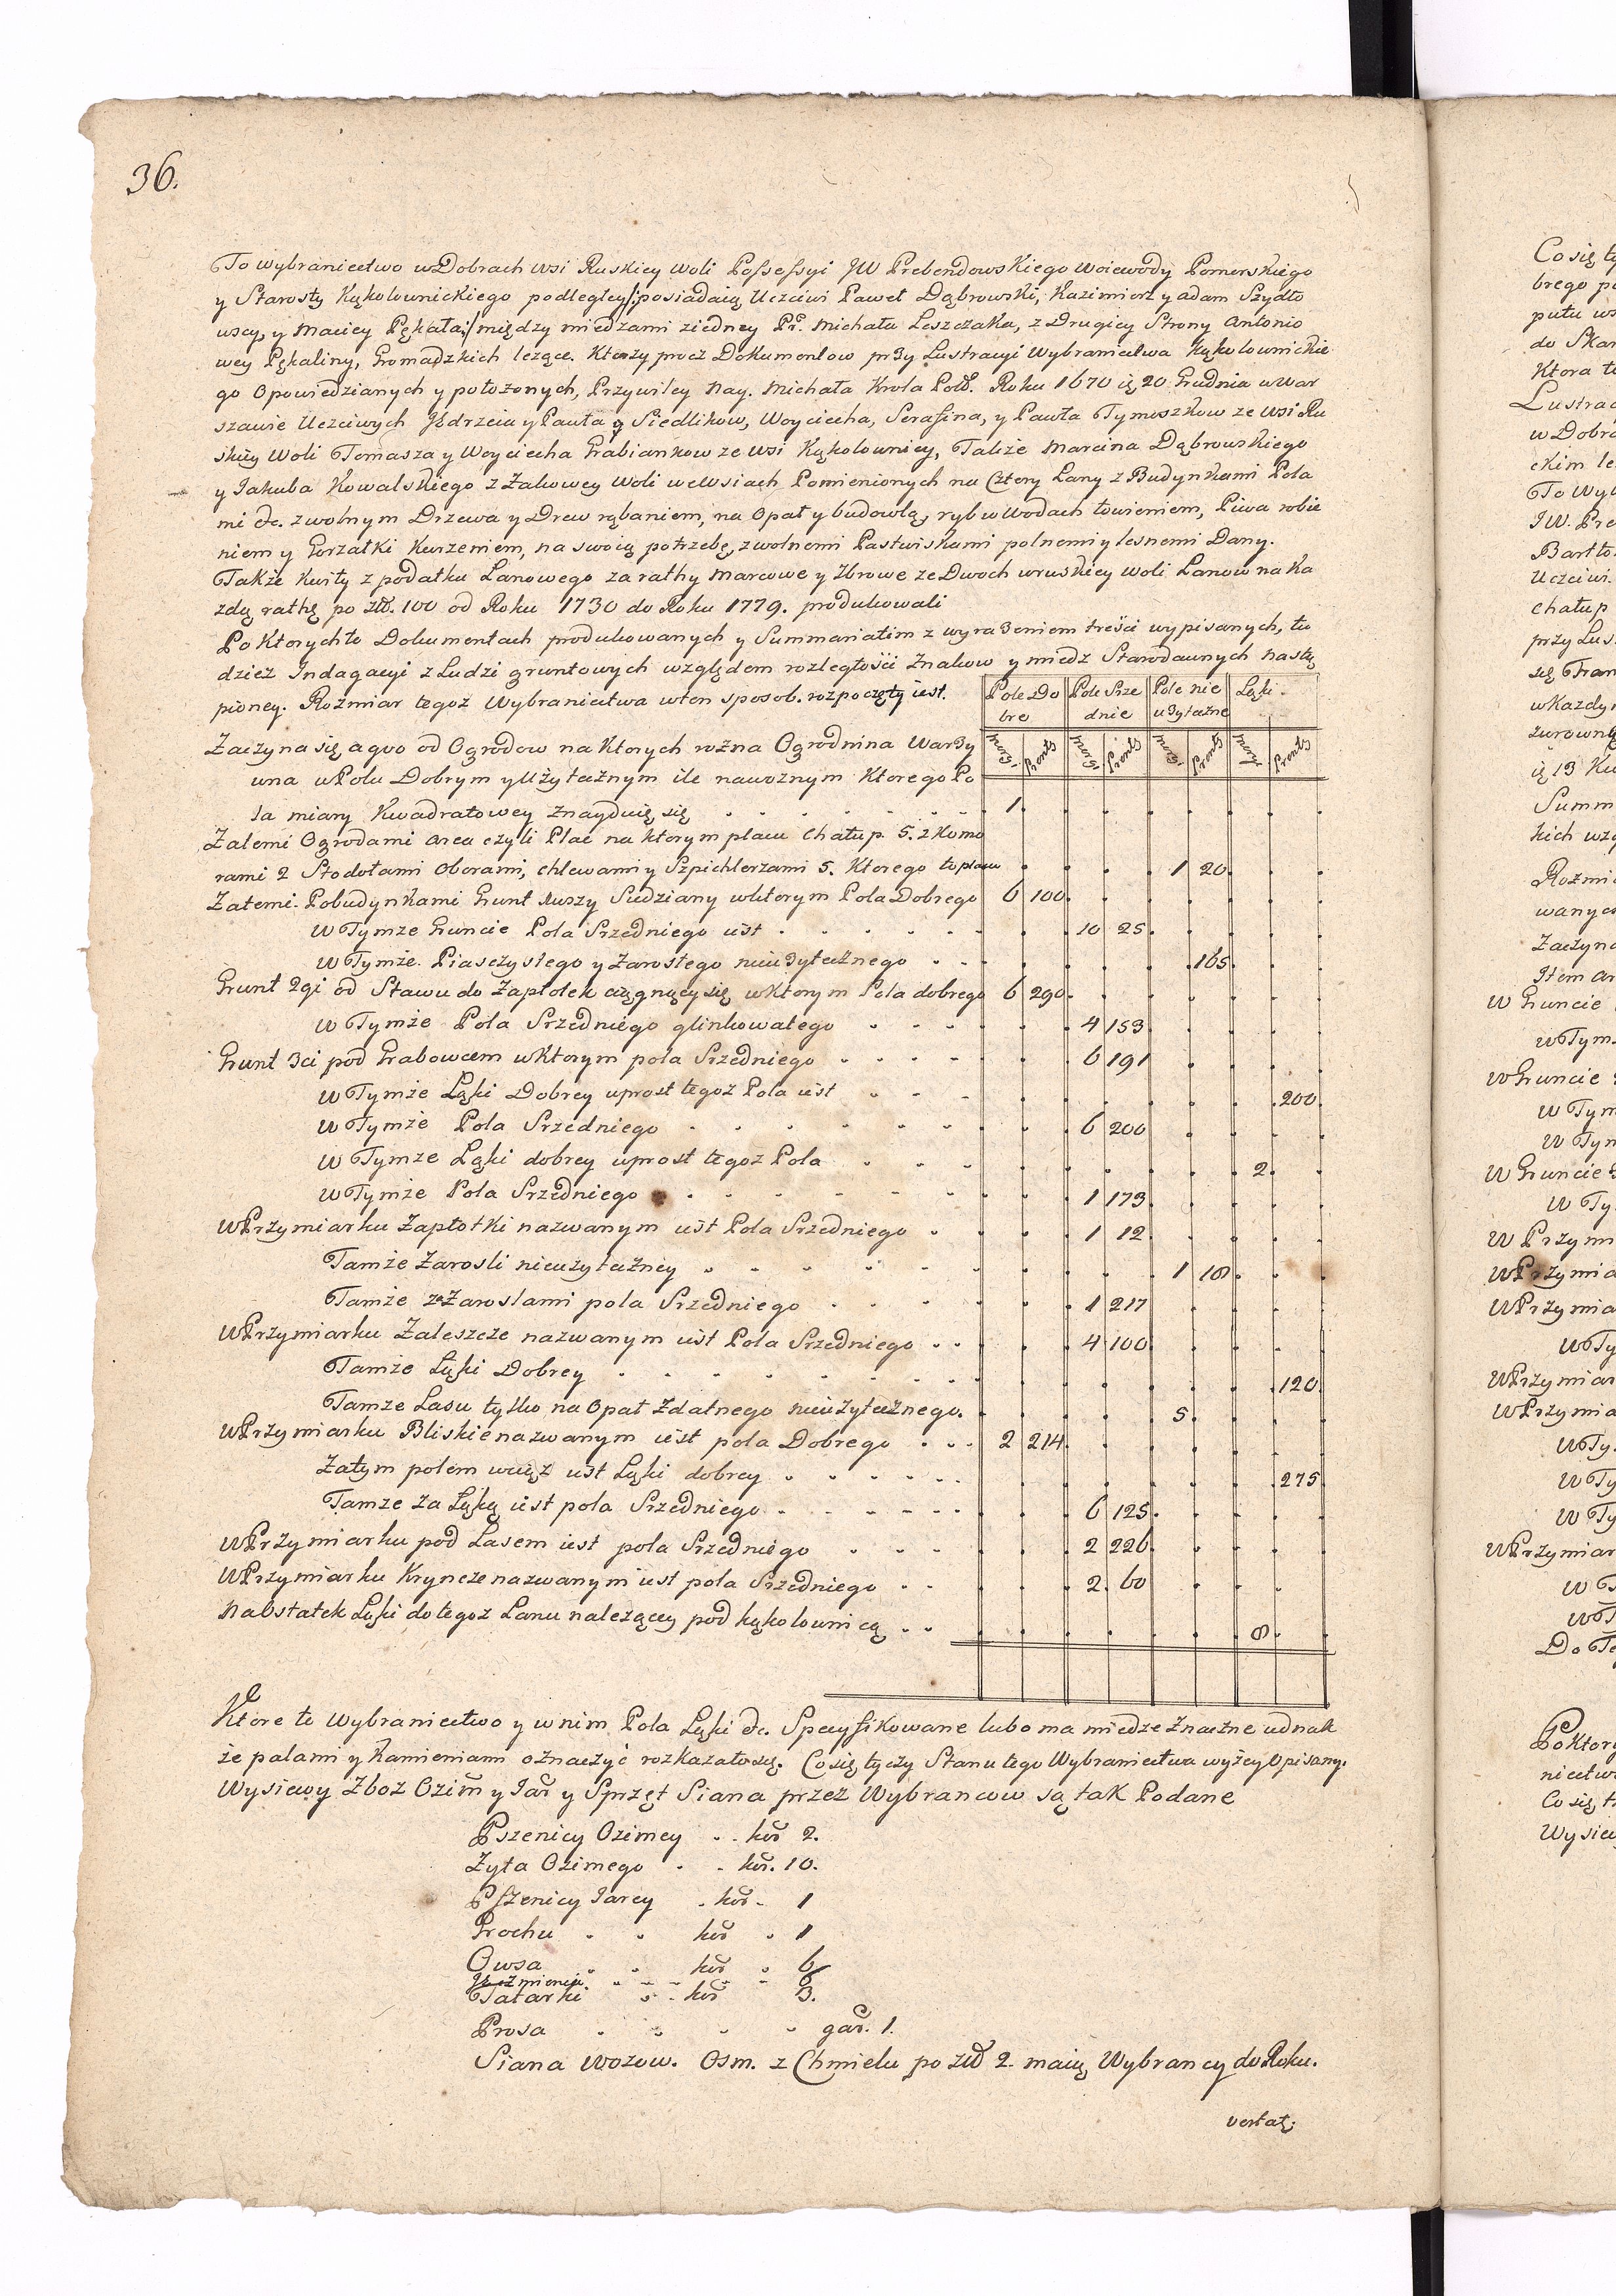 36.
To wybraniectwo w Dobrach wsi Ruskiey Woli Possessyi JW Prebendowskiego Woiewody Pomorskiego
y Starosty Kąkolownickiego podległey /: posiadaią Uczciwi Paweł Dąbrowski, Kazimierz y Adam Szydło
wscy, y Maciey Pękala :/ między miedzami z iedney Pr. Michała Leszczaka, z Drugiey Strony Antonio
wey Pękaliny, Gromadzkich lezące. Ktorzy procz Dokumentow przy Lustracyi Wybraniectwa Kąkolownickie
go Opowiedzianych y położonych, Przywiley Nay. Michała Krola Pol. Roku 1670 ię 20 Grudnia w War
szawie Uczciwych Jędrzeia y Pawła y Siedlikow, Woyciecha, Serafina, y Pawła Tymoszkow ze wsi Ru
skiey Woli Tomasza y Woyciecha Grabiankow ze wsi Kąkolownicy, Także Marcina Dąbrowskiego
y Jakuba Kowalskiego z Żakowey Woli we Wsiach Pomienionych na Cztery Lany z Budynkami Pola
mi &c. z wolnym Drzewa y Drew rąbaniem, na Opał y budowlą, ryb w Wodach łowieniem, Piwa robie
niem y Gorzałki Kurzeniem, na swoią potrzebę, z wolnemi Pastwiskami polnemi y lesnemi Dany.
Także Kwity z podatku Lanowego za rathy Marcowe y 7browe ze Dwoch w ruskiey Woli Lanow na Ka
zdą rathę po zł. 100 od Roku 1730 do Roku 1779. produkowali
Po Ktorych to Dokumentach produkowanych y Summariatim z wyrazeniem treści wypisanych, tu
dzież Indagacyi z Ludzi gruntowych względem rozległości Znakow y miedz Starodawnych nastą
pioney. Rozmiar tegoż Wybraniectwa w ten sposob. rozpoczęty iest.
Pole Do Pole Srze Pole nie Łąki.
bre dnie użytczne
Morg. Prenty Morg. Prenty Morg. Prenty Morg. Prenty
Zaczyna się a quo od Ogrodow na Ktorych rożna Ogrodnina Warzy
wna w Polu Dobrym y Użytcznym ile nawoznym Ktorego Po
la miary Kwadratowey Znayduię się 1.
Za temi Ogrodami area czyli Plac na ktorym placu Chałup 5. z Komo
rami 2 Stodołami Oborami, chlewami y Szpichlerzami 5. Ktorego to placu 1 20.
Za temi. Pobudynkami Grunt Siedziany w ktorym Pola Dobrego 6 100.
W Tymze Gruncie Pola Srzedniego iest 10 25.
W Tymże. Piasczystego y Zarostego nieużytcznego 165.
Grunt 2gi od Stawu do Zapłotek ciągnący się w ktorym Pola dobrego 6 290.
W Tymże Pola Srzedniego glinkowatego 4 153
Grunt 3ci pod Grabowcem w Ktorym pola Srzedniego 6 191
W Tymże Łąki Dobrey wprost tegoz Pola iest .200.
W Tymże Pola Srzedniego 6 200
W Tymze Łąki dobrey wprost tegoz Pola 2.
W Tymże Pola Srzedniego 1 173.
W Przymiarku Zapłotki nazwanym iest Pola Srzedniego 1 12.
Tamże Zarosli nieużytczney 1 10.
Tamże z Zaroslami pola Srzedniego 1 217
W Przymiarku Zaleszcze nazwanym iest Pola Srzedniego 4 100.
Tamże Łąki Dobrey .120.
Tamże Lasu tylko na Opał Zdatnego nieużytcznego. 5.
W Przymiarku Bliskie nazwanym iest pola Dobrego 2 214.
Za tym polem wciąż iest Łąki dobrey .275.
Tamze za Łąką iest pola Srzedniego 6 125.
W Przymiarku pod Lasem iest pola Srzedniego 2 226.
W Przymiarku Kryncze nazwanym iest pola Srzedniego 2. 60
Na ostatek Łąki do tegoż Lanu nalezącey pod kąkolownicą 8.
Ktore to Wybraniectwo y w nim Pola Łąki &c. Specyfikowane lubo ma miedze Znaczne iednak
że palami y Kamieniami oznaczyć rozkazało się. Co się tyczy Stanu tego Wybraniectwa wyżey Opisany.
Wysiewy Zboż Ozim y Jar y Sprzęt Siana przez Wybrancow są tak Podane
Pszenicy Ozimey kor 2.
Zyta Ozimego kor. 10.
Pszenicy Jarey kor. 1
Grochu kor 1
Owsa kor 6
Jęczmienia 6
Tatarki kor 3.
Prosa gar. 1.
Siana Wozow. Osm. z Chmielu po zł 2. maią Wybrancy do Roku.
vertat;
Co się ty
brego p
putu ws
do Skar
Ktora t
Lustrac
w Dobra
ckim le
To Wyb
JW. Pre
Bartło
Uczciwi.
Chałup
przy Lus
się Fran
w Kazdy
zurown
ię 13 Kw
Summ
kich wzg
Rozmi
wanyc
Zaczyn
Item ar
W Gruncie
w Tym
W Gruncie
W Tym
W Tym
W Gruncie
W Ty
W Przymi
W Przymia
W Przymia
W Ty
W Przymiar
W Przymia
W Ty
W Ty
W Ty
W Przymiar
W T
W T
Do Te
Po Ktory
niectw
Co się t
Wysie